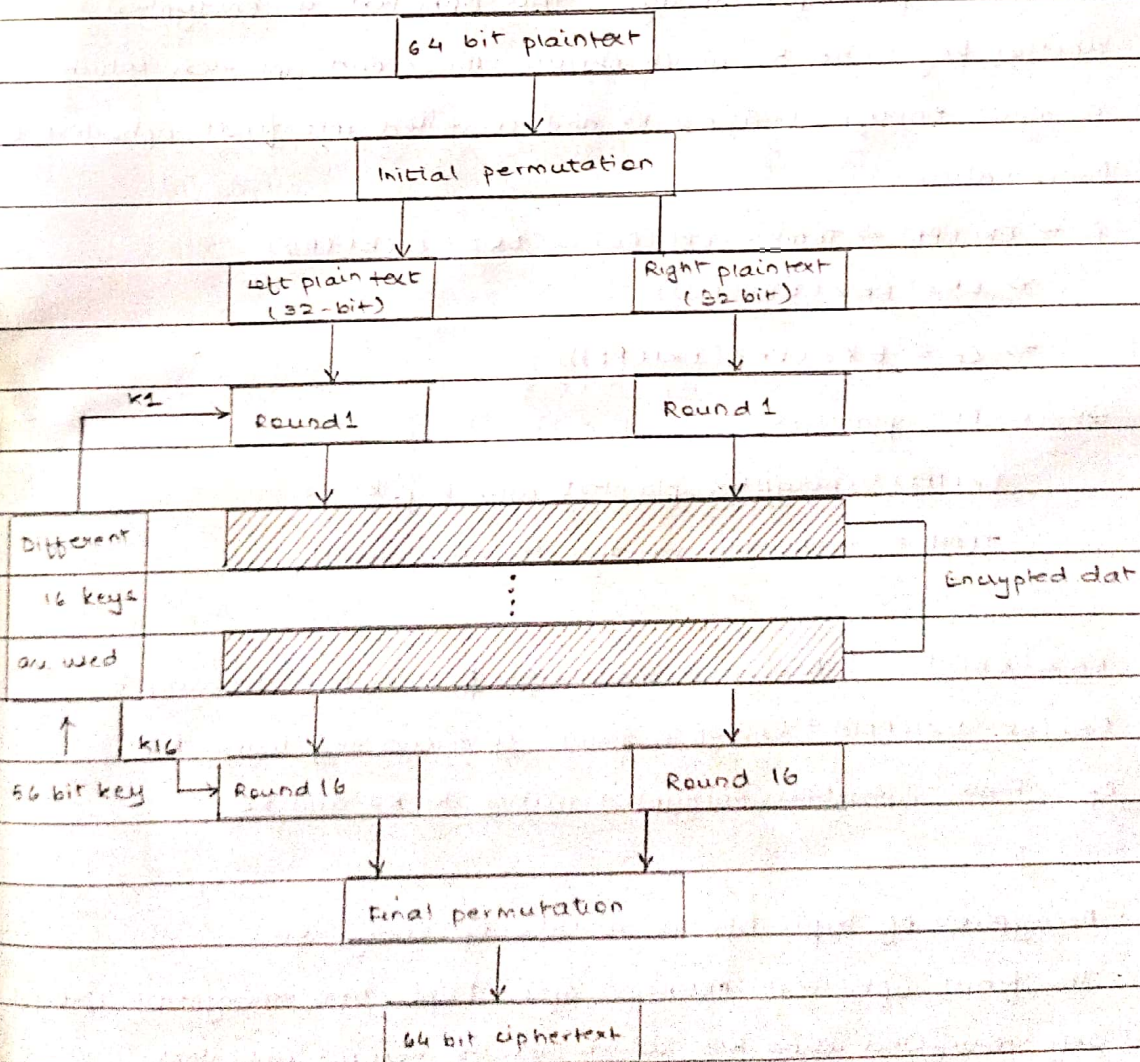 64 bit plaintext
Initial permutation
Left plain text
(32-bit)
Right plaintext
(32 bit)
K1
Round1
Round 1
Different
16 keys
Encrypted dat
used
K16
56 bit key
Round 16
Round 16
Final permutation
64 bit ciphertext